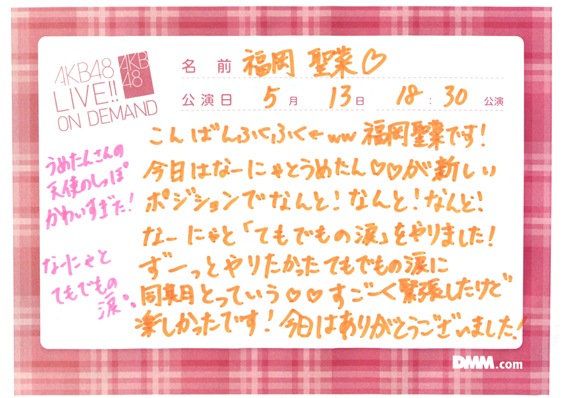 AKB48
LIVE!!
ON DEMAND
AKB
48
名 前 福岡 聖菜♡
公演日 5月 13日 18:30 公演
こんばんふくふく〜ww 福岡聖菜です!
今日はなーにゃとうめたん♡♡が新しい
ポジションでなんと!なんと!なんと!
なーにゃと「てもでもの涙」をやりました!
ずーっとやりたかったてもでもの涙に
同期とっていう♡♡すごーく緊張したけど
楽しかったです!今日はありがとうございました!
うめたんさんの
天使のしっぽ
かわいすぎた!
なーにゃと
てもでもの
涙。
DMM.com